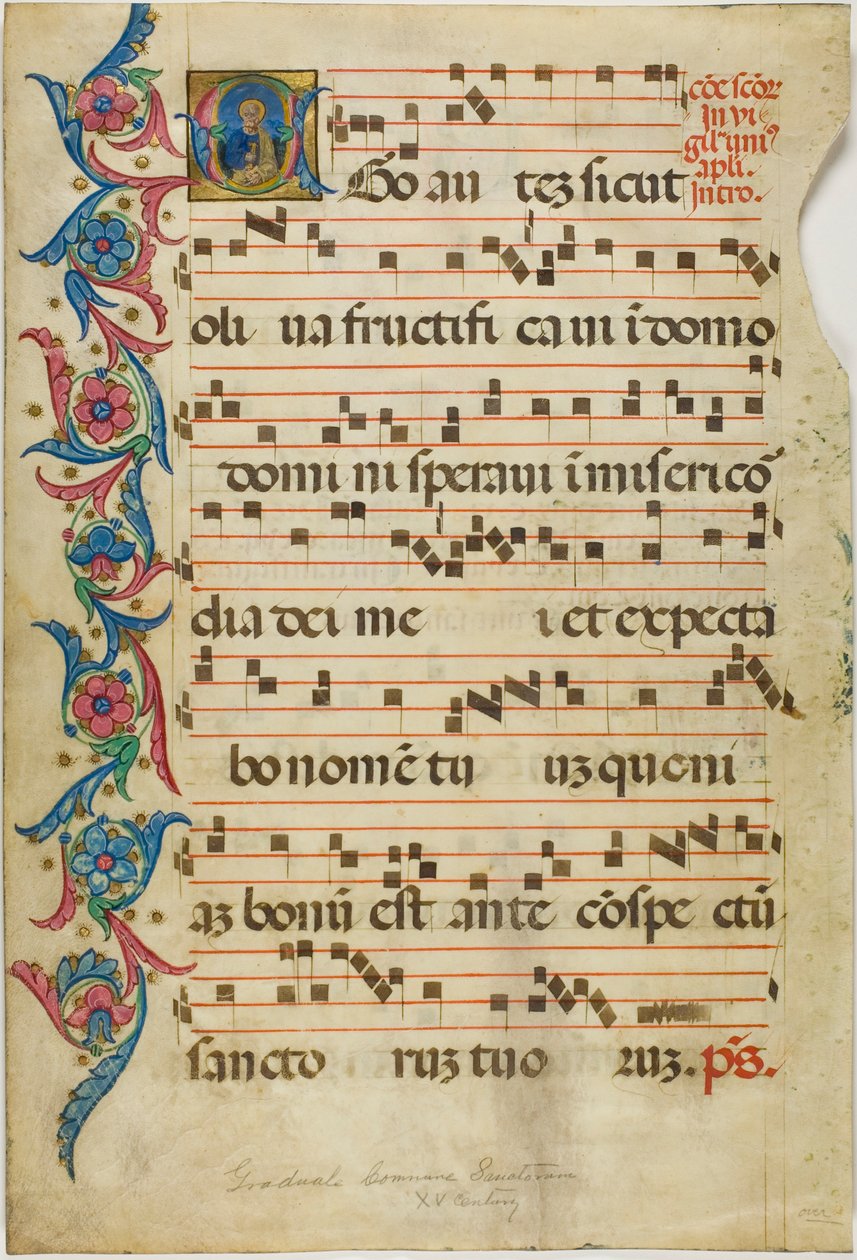 cōe scōꝝ
in vi
gil' uni⁹
apli.
Intro.
Ego au tez sicut
oliua fructifi caui ī domo
domi ni speraui ī misericō
dia dei me i et expecta
bo nomē tu uz quoni
az bonū est ante cōspe ctū
sancto ruz tuo ruz. pš.
Graduale Commune Sanctorum
XV century
over